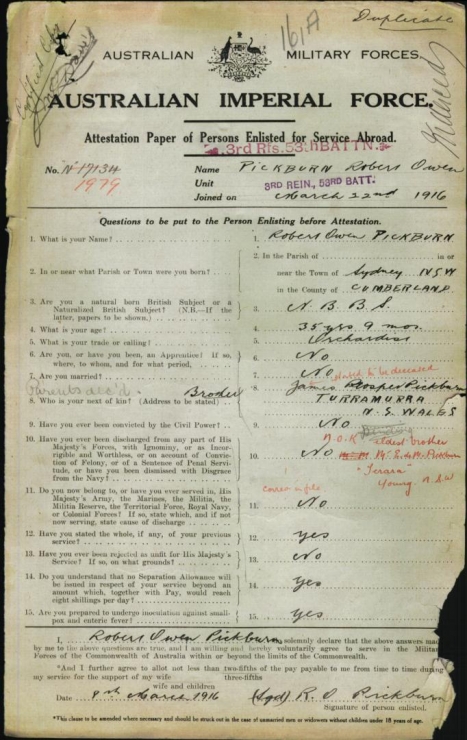 Duplicate
Certified Copy
161A
AUSTRALIAN MILITARY FORCES.
AUSTRALIAN IMPERIAL FORCE.
Attestation Paper of Persons Enlisted for Service Abroad.
3rd Rfs. 53rd BATTN.
No. N 17134 Name PICKBURN Robert Owen
1979 Unit 3RD REIN., 53RD BATT.
Joined on March 22nd 1916
Questions to be put to the Person Enlisting before Attestation.
1. What is your Name? 1. Robert Owen PICKBURN
2. In or near what Parish or Town were you born? 2. In the Parish of in or
near the Town of Sydney NSW
in the County of CUMBERLAND
3. Are you a natural born British Subject or a Naturalized British Subject? (N.B.—If the latter, papers to be shown.) 3. N. B. B. S.
4. What is your age? 4. 35 yrs 9 mos.
5. What is your trade or calling? 5. Orchardist
6. Are you, or have you been, an Apprentice? If so, where, to whom, and for what period, 6. No
7. Are you married? 7. No
stated to be deceased
Parents dec'd. Brother
8. Who is your next of kin? (Address to be stated) 8. James Pickburn
TURRAMURRA
N. S. WALES
9. Have you ever been convicted by the Civil Power? 9. No
N.O.K. eldest brother
10. Have you ever been discharged from any part of His Majesty's Forces, with Ignominy, or as Incorrigible and Worthless, or on account of Conviction of Felony, or of a Sentence of Penal Servitude, or have you been dismissed with Disgrace from the Navy? 10. No
Pickburn
Young N.S.W
11. Do you now belong to, or have you ever served in, His Majesty's Army, the Marines, the Militia, the Militia Reserve, the Territorial Force, Royal Navy, or Colonial Forces? If so, state which, and if not now serving, state cause of discharge 11. No
12. Have you stated the whole, if any, of your previous service? 12. yes
13. Have you ever been rejected as unfit for His Majesty's Service? If so, on what grounds? 13. No
14. Do you understand that no Separation Allowance will be issued in respect of your service beyond an amount which, together with Pay, would reach eight shillings per day? 14. yes
15. Are you prepared to undergo inoculation against small-pox and enteric fever? 15. yes
I, Robert Owen Pickburn solemnly declare that the above answers made
by me to the above questions are true, and I am willing and hereby voluntarily agree to serve in the Military
Forces of the Commonwealth of Australia within or beyond the limits of the Commonwealth.
*And I further agree to allot not less than two-fifths of the pay payable to me from time to time during
my service for the support of my wife three-fifths
wife and children
Date 8th March 1916 (Sgd) R. O. Pickburn
Signature of person enlisted.
*This clause to be amended where necessary and should be struck out in the case of unmarried men or widowers without children under 18 years of age.